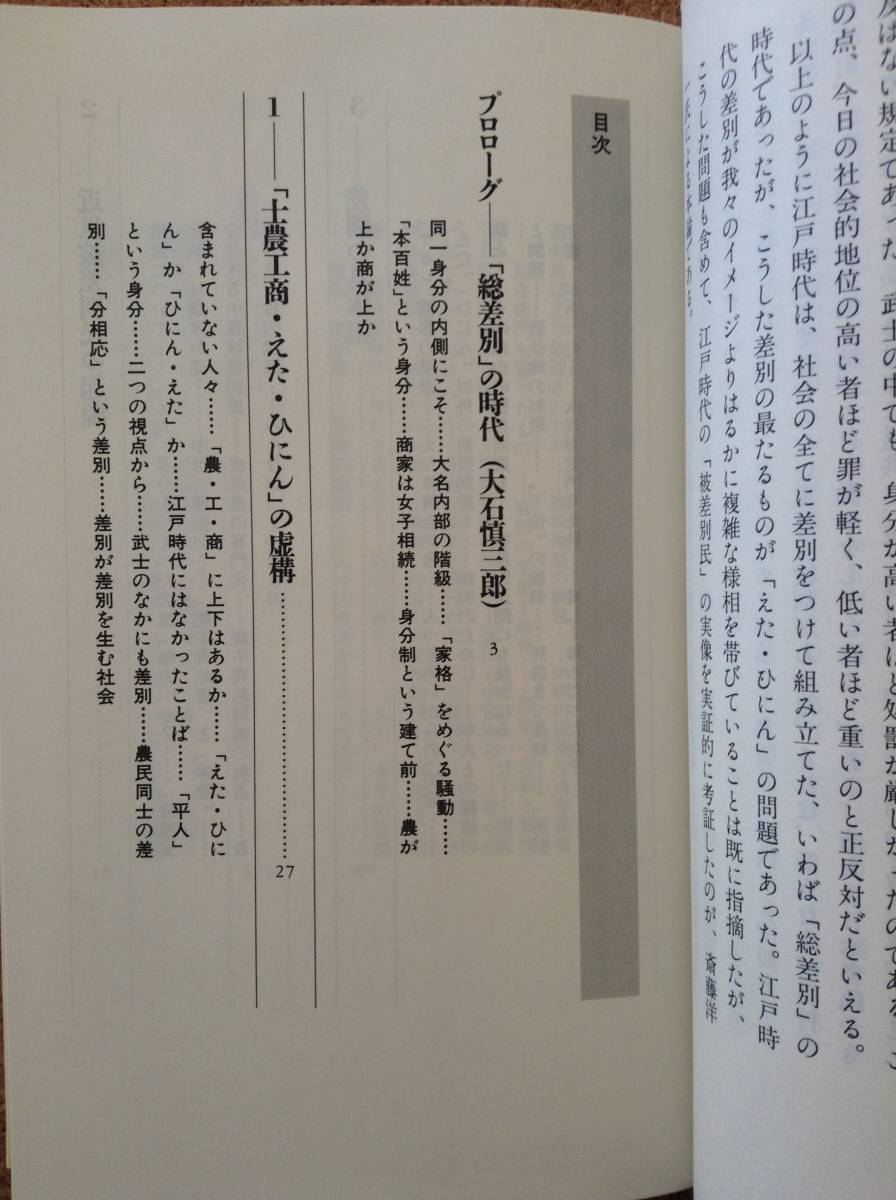 はない規定であった。武士の中でも、身分が高い者ほど処罰が厳しかったのである。こ
の点、今日の社会的地位の高い者ほど罪が軽く、低い者ほど重いのと正反対だといえる。
以上のように江戸時代は、社会の全てに差別をつけて組み立てた、いわば「総差別」の
時代であったが、こうした差別の最たるものが「えた・ひにん」の問題であった。江戸時
代の差別が我々のイメージよりはるかに複雑な様相を帯びていることは既に指摘したが、
こうした問題も含めて、江戸時代の「被差別民」の実像を実証的に考証したのが、斎藤洋
目次
プロローグ——「総差別」の時代（大石慎三郎） 3
同一身分の内側にこそ……大名内部の階級……「家格」をめぐる騒動……
「本百姓」という身分……商家は女子相続……身分制という建て前……農が
上か商が上か
1——「士農工商・えた・ひにん」の虚構…………………………27
含まれていない人々……「農・工・商」に上下はあるか……「えた・ひに
ん」か「ひにん・えた」か……江戸時代にはなかったことば……「平人」
という身分……二つの視点から……武士のなかにも差別……農民同士の差
別……「分相応」という差別……差別が差別を生む社会